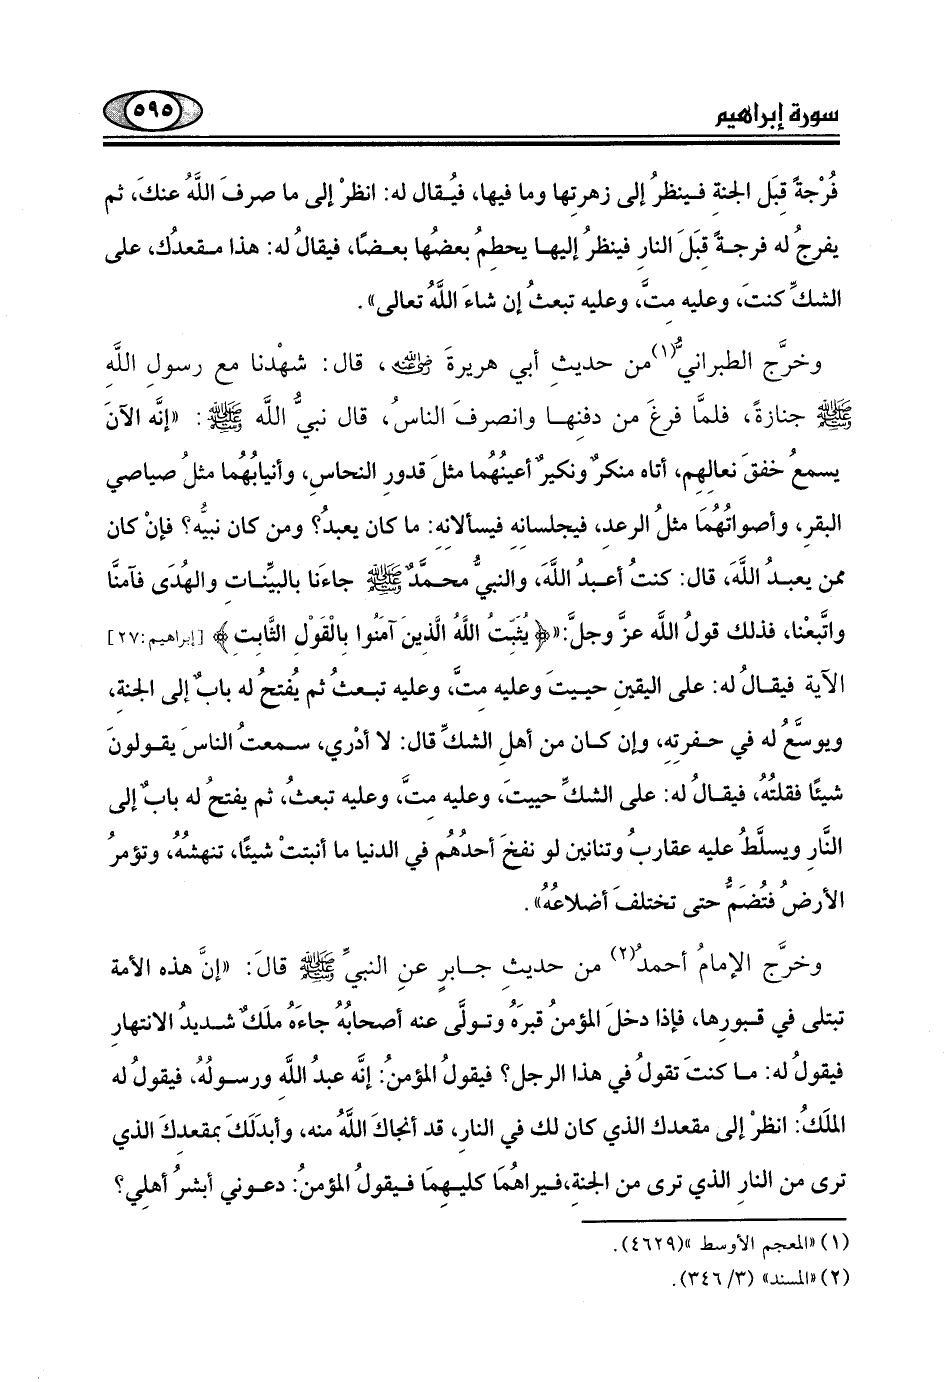 سورة إبراهيم
٥٩٥
فُرْجةً قِبَل الجنةِ فـينظرُ إلى زهرتِها وما فيها، فيُقال له: انظرْ إلى ما صرفَ اللَّهُ عنكَ، ثم
يفرجُ له فرجـةً قِبَلَ النارِ فينظرُ إليهـا يحطمُ بعضُها بعضـًا، فيقالُ له: هذا مـقعدُك، على
الشكِّ كنتَ، وعليه متَّ، وعليه تبعثُ إن شاءَ اللَّهُ تعالى».
وخرَّج الطبرانيُّ(١) من حديثِ أبي هريرةَ رضي الله عنه، قال: شهْدنا مع رسولِ اللَّهِ
ﷺ جنازةً، فلمَّا فرغَ من دفنِهـا وانصرفَ الناسُ، قال نبيُّ اللَّه ﷺ: «إنَّه الآنَ
يسمعُ خفقَ نعالِهم، أتاه منكرٌ ونكيرٌ أعينُهُما مثلَ قدورِ النحاسِ، وأنيابُهُما مثلُ صياصي
البقرِ، وأصواتُهُمَا مثلُ الرعدِ، فيجلسانِه فيسألانِه: ما كان يعبدُ؟ ومن كان نبيُّه؟ فإنْ كان
ممن يعبـدُ اللَّهَ، قال: كنتُ أعـبدُ اللَّهَ، والنبيُّ محـمَّدٌ ﷺ جاءَنا بالبيِّنـات والهُدَى فآمنَّا
واتَّبعْنا، فذلك قولُ اللَّه عزَّ وجلَّ: «﴿ يُثَبِّتُ اللَّهُ الَّذِينَ آمَنُوا بِالْقَوْلِ الثَّابِتِ ﴾ [إبراهيم:٢٧]
الآية فيقـالُ له: على اليقينِ حيـيتَ وعليه متَّ، وعليه تبـعثُ ثم يُفتحُ له بابٌ إلى الجنةِ،
ويوسَّعُ له في حـفرتِه، وإن كـان من أهلِ الشكِّ قال: لا أدْري، سـمعتُ الناسَ يقـولونَ
شيئًا فقلتُهُ، فيقـالُ له: على الشكِّ حييتَ، وعليه متَّ، وعليه تبعثُ، ثم يفتحُ له بابٌ إلى
النَّارِ ويسلَّطُ عليه عقاربُ وتنانين لو نفخَ أحدُهُم في الدنيا ما أنبتتْ شيئًا، تنهشُهُ، وتؤمرُ
الأرضُ فتُضَمُّ حتى تختلفَ أضلاعُهُ».
وخرَّج الإمامُ أحمدُ(٢) من حديثِ جـابرٍ عنِ النبيِّ ﷺ قالَ: «إنَّ هذه الأمةَ
تبتلى في قـبورِها، فإذا دخلَ المؤمنُ قبرَهُ وتـولَّى عنه أصحابُهُ جاءَهُ ملَكٌ شـديدُ الانتهارِ
فيقولُ له: مـا كنتَ تقولُ في هذا الرجلِ؟ فيقولُ المؤمنُ: إنَّه عبدُ اللَّهِ ورسولُهُ، فيقولُ له
الملَكُ: انظرْ إلى مقعدك الذي كان لك في النارِ، قد أنجاكَ اللَّهُ منه، وأبدَلَكَ بمقعدِكَ الذي
ترى من النارِ الذي ترى من الجنةِ،فـيراهُمَا كليـهِمَا فـيقولُ المؤمنُ: دعـوني أبشرُ أهلِي؟
(١) «المعجم الأوسط »(٤٦٢٩).
(٢) «المسند» (٣/ ٣٤٦).